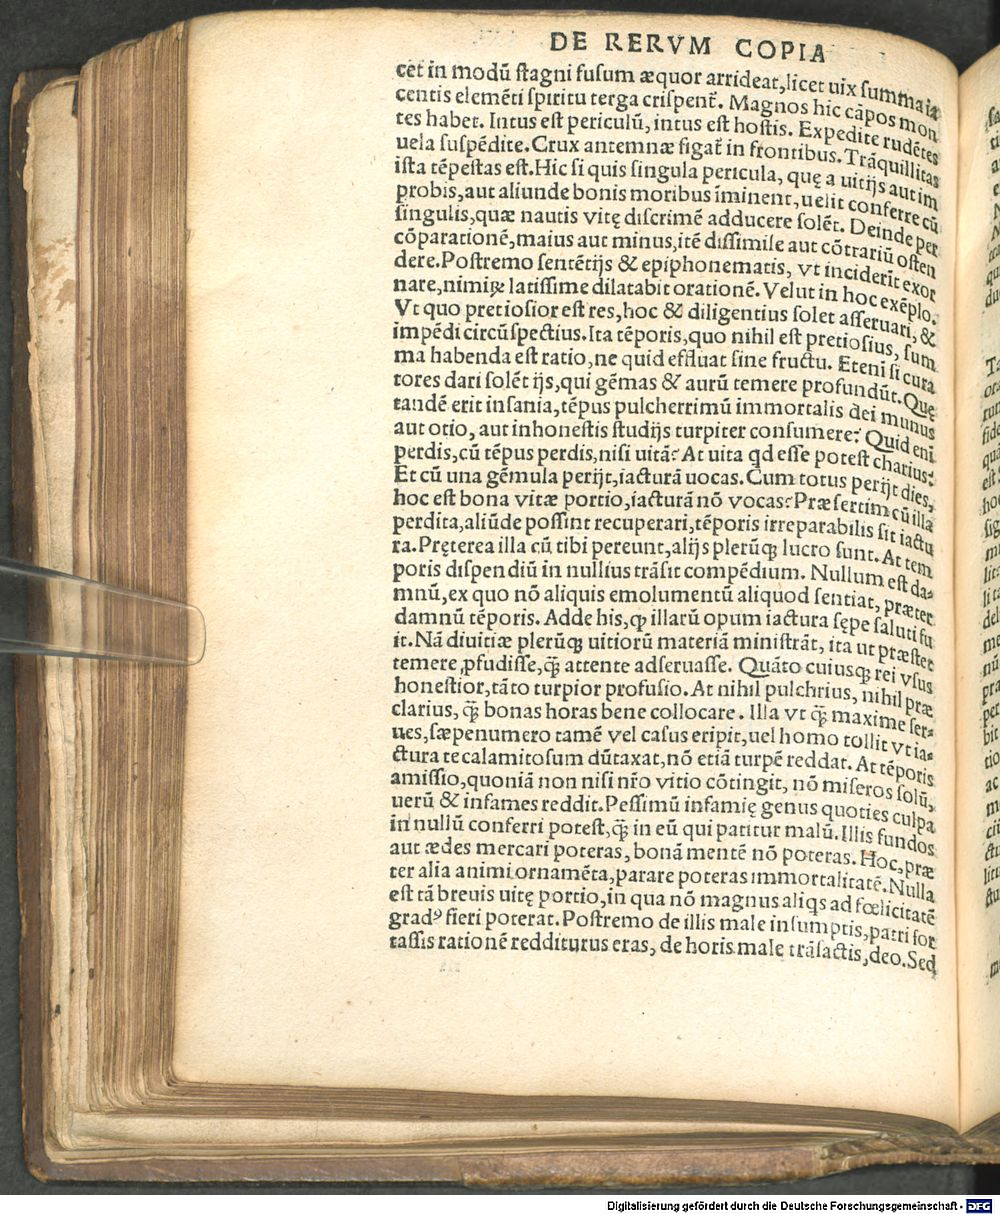 DE RERVM COPIA
cet in modū stagni fusum æquor arrideat, licet uix summa ia
centis elemēti spiritu terga crispent᷑. Magnos hic cāpos mon
tes habet. Intus est periculū, intus est hostis. Expedite rudētes
uela suspēdite. Crux antemnæ figat᷑ in frontibus. Trāquillitas
ista tēpestas est. Hic si quis singula pericula, quę a uitijs aut im
probis, aut aliunde bonis moribus īminent, uelit conferre cū
singulis, quæ nautis vitę discrimē adducere solēt. Deinde per
cōparationē, maius aut minus, itē dissimile aut cōtrariū osten
dere. Postremo sentētijs & epiphonematis, vt inciderīt exor
nare, nimiꝝ latissime dilatabit orationē. Velut in hoc exēplo.
Vt quo pretiosior est res, hoc & diligentius solet asseruari, &
impēdi circūspectius. Ita tēporis, quo nihil est pretiosius, sum
ma habenda est ratio, ne quid effluat sine fructu. Etenī si cura
tores dari solēt ijs, qui gēmas & aurū temere profundūt. Quę
tandē erit insania, tēpus pulcherrimū immortalis dei munus
aut otio, aut inhonestis studijs turpiter consumere? Quid enī
perdis, cū tēpus perdis, nisi uitā? At uita qd esse potest charius?
Et cū una gēmula perijt, iacturā uocas. Cum totus perijt dies,
hoc est bona vitæ portio, iacturā nō vocas? Præsertim cū illa
perdita, aliūde possint recuperari, tēporis irreparabilis sit iactu
ra. Pręterea illa cū tibi pereunt, alijs plerūqꝫ lucro sunt. At tem
poris dispendiū in nullius trāsit compēdium. Nullum est da-
mnū, ex quo nō aliquis emolumentū aliquod sentiat, præter
damnū tēporis. Adde his, ꝙ illarū opum iactura sępe saluti fu
it. Nā diuitiæ plerūqꝫ uitiorū materiā ministrāt, ita ut præstet
temere ꝓfudisse, q̄ꝫ attente adseruasse. Quāto cuiusqꝫ rei vsus
honestior, tāto turpior profusio. At nihil pulchrius, nihil præ
clarius, q̄ꝫ bonas horas bene collocare. Illa vt q̄ꝫ maxime ser-
ues, sæpenumero tamē vel casus eripit, uel homo tollit vt ia-
ctura te calamitosum dūtaxat, nō etiā turpē reddat. At tēporis
amissio, quoniā non nisi nr̄o vitio cōtingit, nō miseros solū,
uerū & infames reddit. Pessimū infamię genus quoties culpa
in nullū conferri potest, q̄ꝫ in eū qui patitur malū. Illis fundos
aut ædes mercari poteras, bonā mentē nō poteras. Hoc, præ
ter alia animi ornamēta, parare poteras immortalitatē. Nulla
est tā breuis uitę portio, in qua nō magnus aliqs ad fœlicitatē
gradꝰ fieri poterat. Postremo de illis male insumptis, patri for
tassis rationē redditurus eras, de horis male trāsactis, deo. Sed
Digitalisierung gefördert durch die Deutsche Forschungsgemeinschaft - DFG